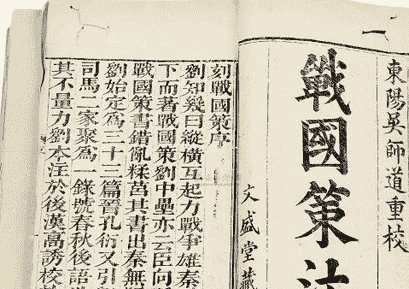 東陽吳師道重校
戰國策注
文盛堂藏
刻戰國策序
劉知幾曰縱橫互起力戰爭雄秦
下而著戰國策劉中壘亦云臣向
戰國策書錯亂糅莒其書出秦無
劉始定為三十三篇晉孔衍又引
司馬二家聚為一錄號春秋後語
其不量力劉本注於後漢高誘校